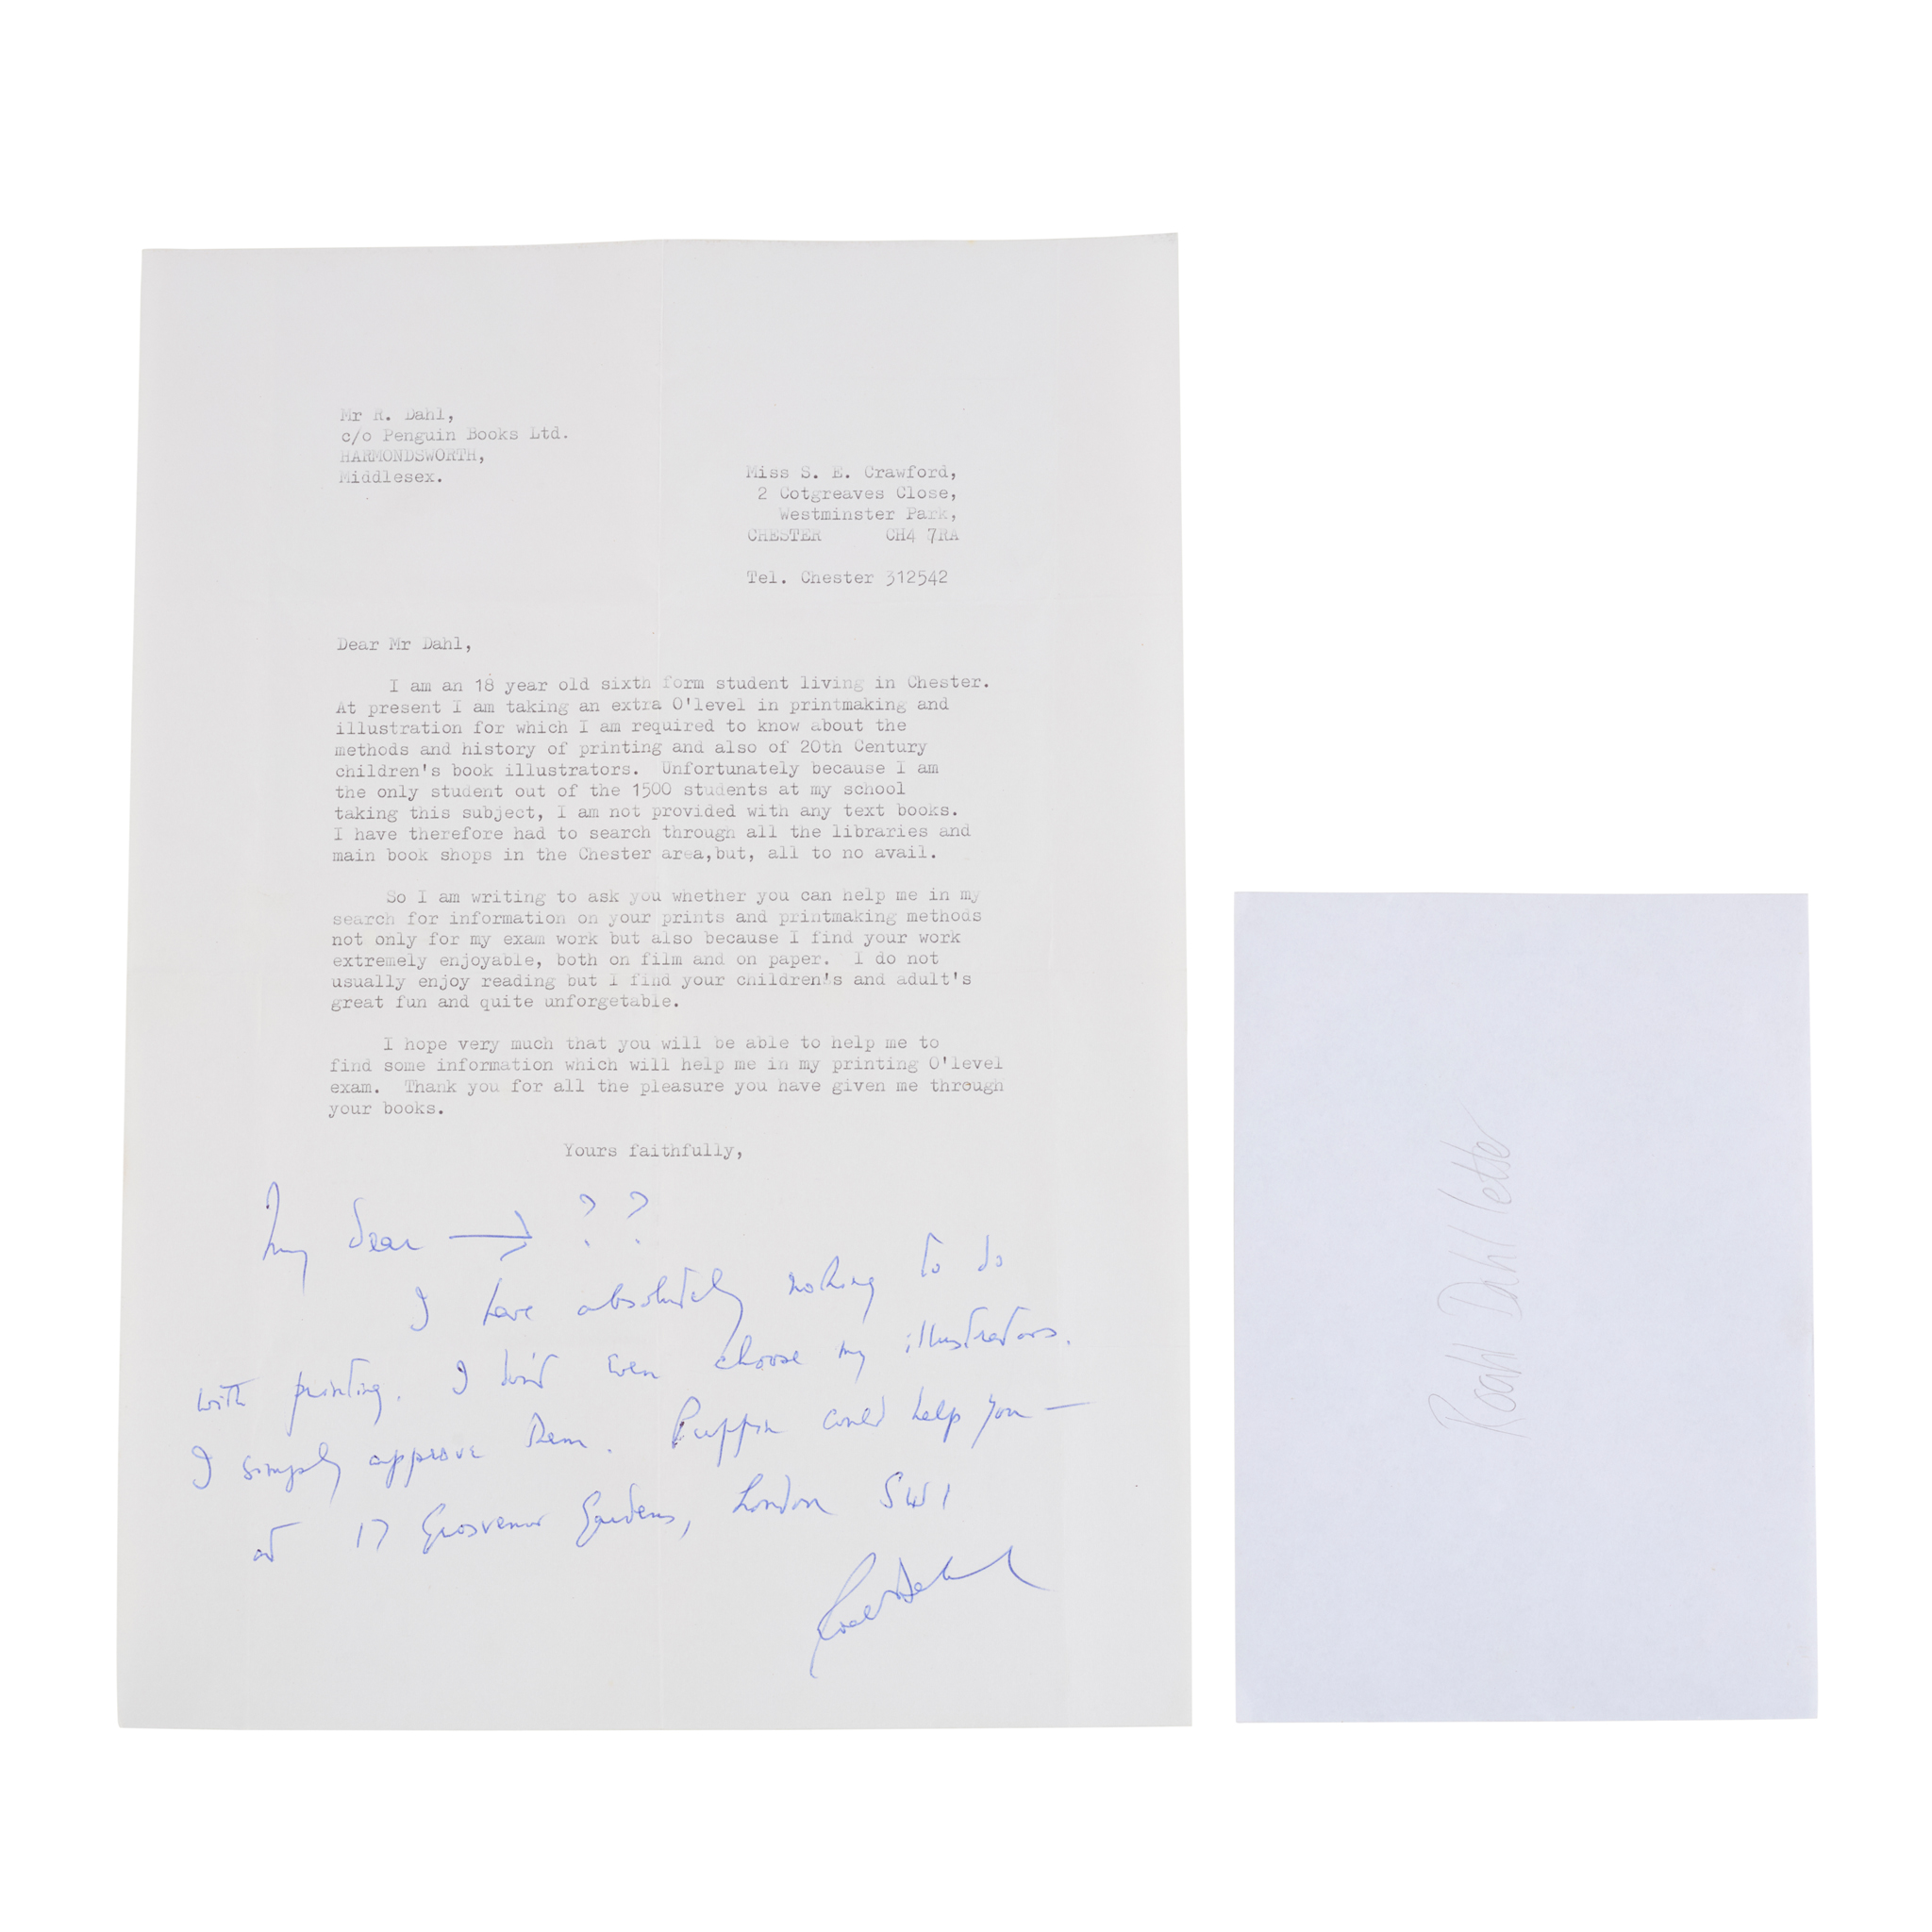 Mr R. Dahl,
c/o Penguin Books Ltd.
HARMONDSWORTH,
Middlesex.
Miss S. E. Crawford,
2 Cotgreaves Close,
Westminster Park,
CHESTER CH4 7RA
Tel. Chester 312542
Dear Mr Dahl,
I am an 18 year old sixth form student living in Chester.
At present I am taking an extra O'level in printmaking and
illustration for which I am required to know about the
methods and history of printing and also of 20th Century
children's book illustrators. Unfortunately because I am
the only student out of the 1500 students at my school
taking this subject, I am not provided with any text books.
I have therefore had to search through all the libraries and
main book shops in the Chester area,but, all to no avail.
So I am writing to ask you whether you can help me in my
search for information on your prints and printmaking methods
not only for my exam work but also because I find your work
extremely enjoyable, both on film and on paper. I do not
usually enjoy reading but I find your children's and adult's
great fun and quite unforgetable.
I hope very much that you will be able to help me to
find some information which will help me in my printing O'level
exam. Thank you for all the pleasure you have given me through
your books.
Yours faithfully,
My dear → ? ?
I have absolutely nothing to do
with printing. I don't even choose my illustrators.
I simply approve them. Puffin could help you —
at 17 Grosvenor Gardens, London SW1
Roald Dahl
Roald Dahl letter